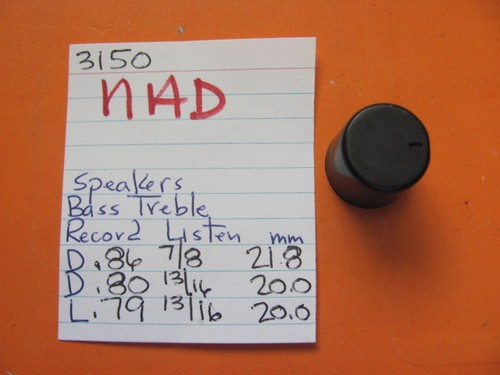 3150
NAD
Speakers
Bass Treble
Record Listen mm
D .86 7/8 21.8
D .80 13/16 20.0
L .79 13/16 20.0